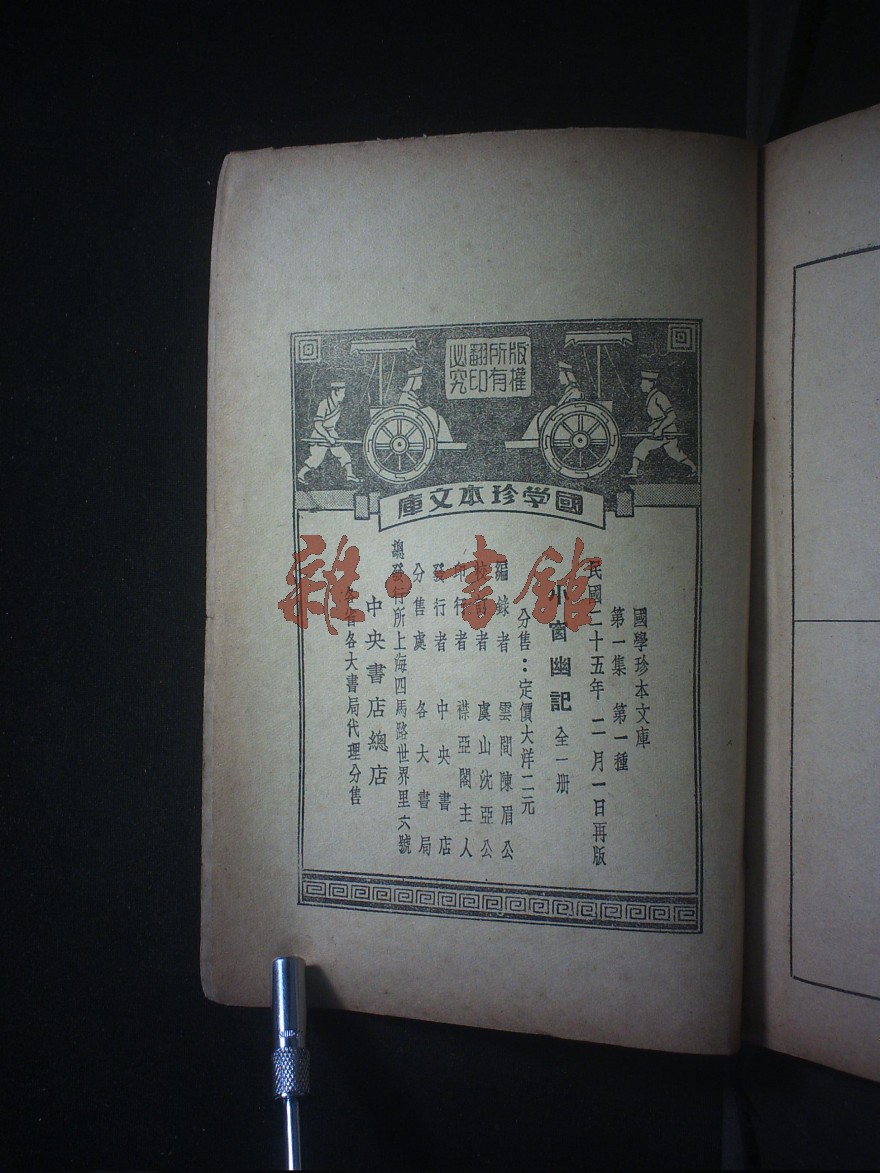 版權
所有
翻印
必究
國学珍本文庫
國學珍本文庫
第一集　第一種
民國二十五年　二月一日再版
小窗幽記　全一册
分售：定價大洋二元
編錄者　雲間陳眉公
校訂者　虞山沈亞公
印行者　襟亞閣主人
發行者　中央書店
分售處　各大書局
總發行所上海四馬路世界里六號
中央書店總店
各省各大書局代理分售
雜·書館